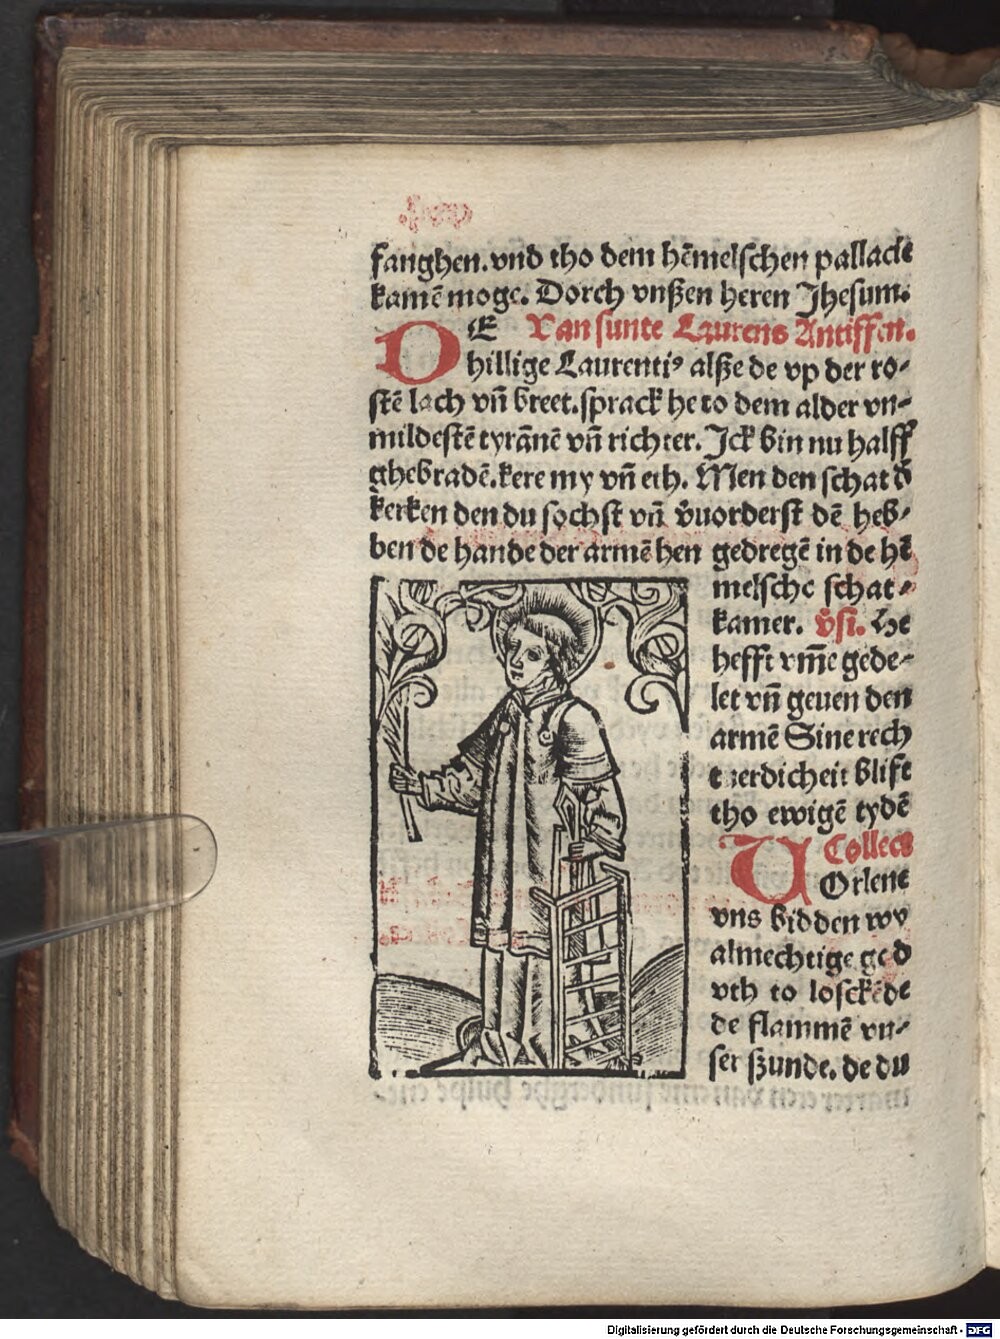 fanghen. vnd tho dem hēmelschen pallacie
kamē moge. Dorch vnßen heren Jhesum.
Van sunte Laurens Antiffen.
OE
hillige Laurenti⁹ alße de vp der ro⸗
stē lach vn̄ breet. sprack he to dem alder vn⸗
mildestē tyrānē vn̄ richter. Jck bin nu halff
ghebradē. kere my vn̄ eth. Men den schat d̄
kerken den du sochst vn̄ v̄uorderst dē heb⸗
ben de hande der armē hen gedregē in de hē
melsche schat⸗
kamer. v̄si. He
hefft vm̄e gede⸗
let vn̄ geuen den
armē Sine rech
tuerdicheit blift
tho ewigē tydē
Collect
UOrlene
vns bidden wy
almechtige god
vth to losckēde
de flammē vn⸗
ser szunde. de du
Digitalisierung gefördert durch die Deutsche Forschungsgemeinschaft - DFG